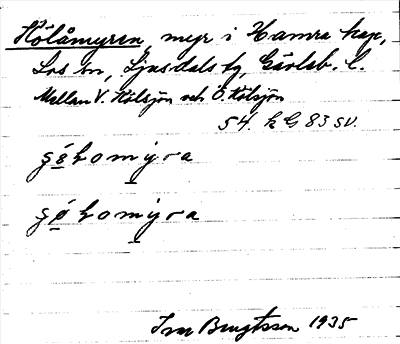 Hölåmyren, myr i Hamra kap,
Los sn, Ljusdals tg, Gävleb. l.
Mellan V. Hölsjön och Ö. Hölsjön
54. k G 83 SV.
Ivar Bengtsson 1935